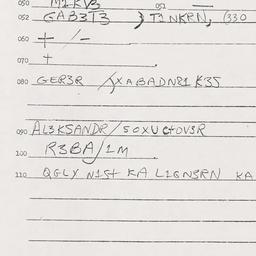 050 M1KV3 051
052 GAB3T3 ) T1NKRN, (330
060 + / -
070 +
080 GER3R /XABADN21 K35
090 AL3KSANDR/SOXUCTOV3R
100 R3BA/1M
110 QGLY N1St KA L1GN3RN KA